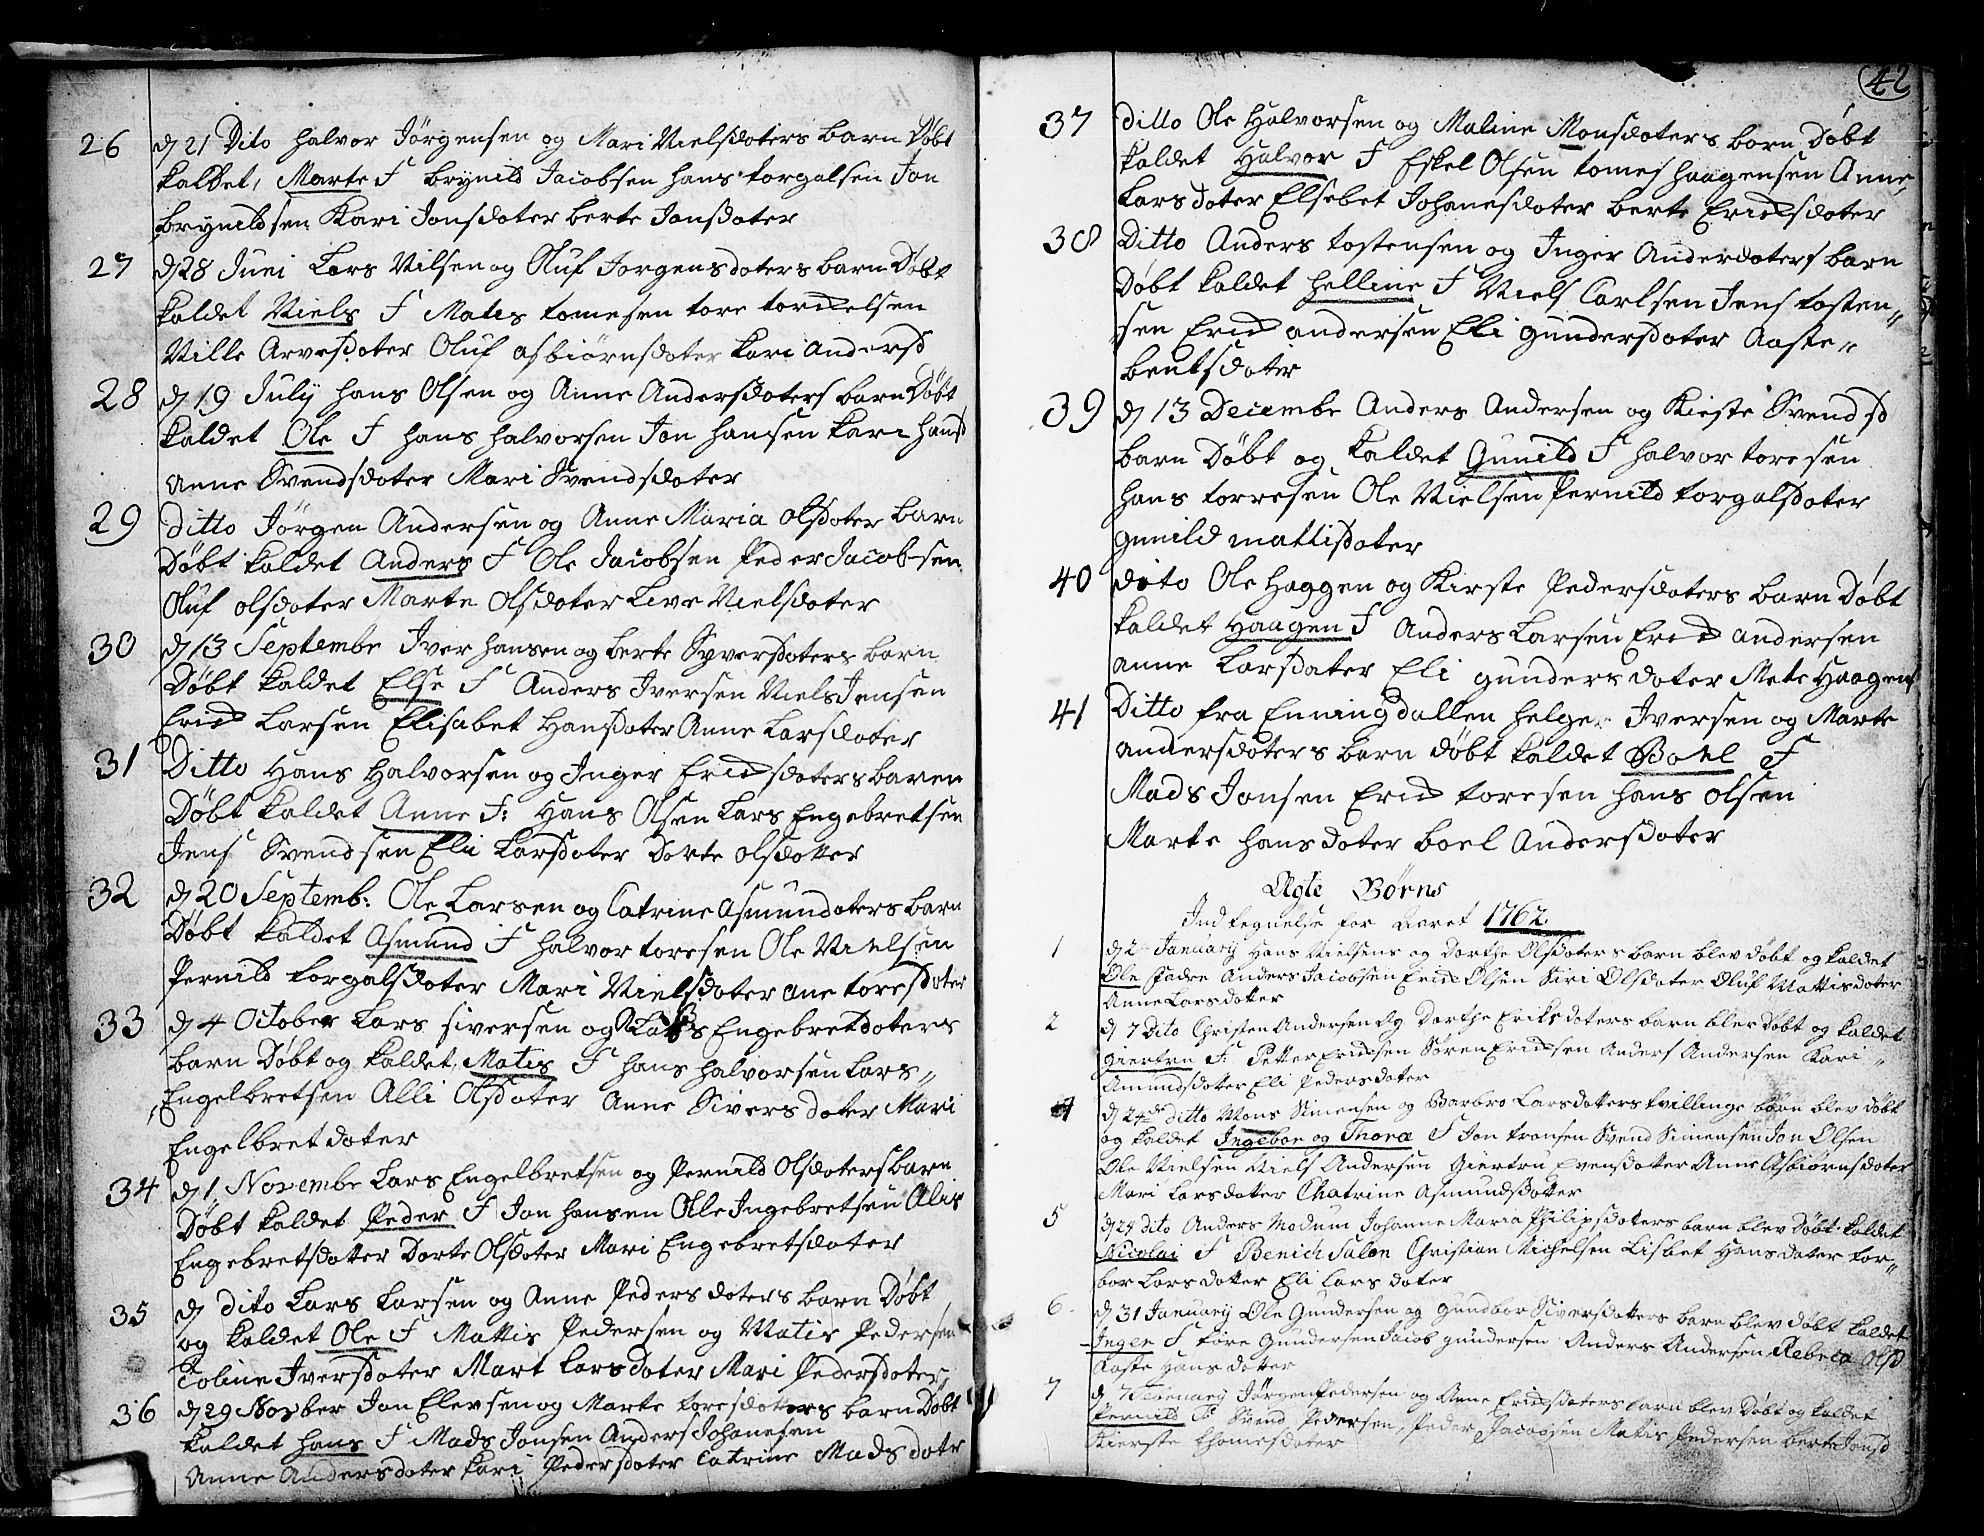 26 d 21 Dito halvor Jörgensen og Mari Nielsdoters barn Döbt
kaldet, Marte F brynild Jacobsen hans torgalsen Jon
brynildsen Kari Jonsdoter berte Jonsdoter
27 d 28 Juni Lars Nilsen og Oluf Jorgensdoters barn Döbt
kaldet Niels F Mates tomesen tore torckelsen
Nille Arvesdoter Oluf asbiörnsdoter kari andersd
28 d 19 July hans Olsen og Anne Andersdoters barn Döbt
kaldet Ole F hans halvorsen Jon hansen kari hansd
Anne Svendsdoter Mari Svendsdoter
29 ditto Jörgen Andersen og Anne Maria olsdoter barn
Döbt kaldet Anders F Ole Jacobsen Peder Jacobsen
Oluf olsdoter Marte Olsdoter Live Nielsdoter
30 d 13 Septembr Iver hansen og berte Syversdoters barn
Döbt kaldet Else F Anders Iversen Niels Jensen
Erick Larsen Elisabet Hansdoter Anne Larsdoter
31 Ditto Hans Halvorsen og Inger Ericksdoters baren
Döbt kaldet Anne F: Hans Olsen Lars Engebretsen
Jens Svendsen Eli Larsdoter Dorte olsdotter
32 d 20 Septemb: Ole Larsen og Catrine Asmundoters barn
Döbt kaldet Asmund F halvor toresen Ole Nielsen
Pernild torgalsdoter Mari Nielsdoter ane toresdoter
33 d 4 October Lars siversen og Engebretdoters
barn Döbt og kaldet Mates F hans halvorsen Lars„
Engelbretsen Alli Olsdoter Anne Siversdoter Mari
Engelbretdoter
34 d 1 Novembr Lars Engelbretsen og Pernild Olsdoters barn
Döbt kaldet Peder F Jon hansen Ole Ingebretsen Alis
Engebretsdotter Dorte Olsdoter Mari Engebretsdoter
35 d dito Lars Larsen og Anne Pedersdoters barn Döbt
og kaldet Ole F Mattis Pedersen og Matis Pedersen
Toline Iversdoter Mart Larsdoter Mari Pedersdoter
36 d 29 Novber Jon Elevsen og Marte toresdoters barn Döbt
kaldet hans F Mads Jonsen Anders Johanesen
Anne Andersdoter kari Pedersdoter Catrine Madsdoter
42
37 ditto Ole Halvorsen og Maline Monsdoters born Döbt
kaldet Halvor F Eskel Olsen tomes haagensen Anne
Larsdoter Elsebet Johanesdoter berte Ericksdoter
38 Ditto Anders tostensen og Inger Anderdoters barn
Döbt kaldet helline F Niels Carlsen Jens tosten„
sen Erick andersen Eli gundersdoter Aaste„
bentsdoter
39 d 13 Decembr Anders Andersen og Kieste Svendsd
barn Döbt og kaldet Gunild F halvor toresen
hans torresen Ole Nielsen Pernild torgalsdoter
gunild mattisdoter
40 dito Ole Haggen og Kirste Pedersdoters barn Döbt
kaldet Haagen F Anders Larsen Erick andersen
anne Larsdater Eli gundersdoter Mete Haagens
41 Ditto fra Enningdallen helge Iversen og Marte
andersdoters barn döbt kaldet Boel F
Mads Jonsen Erick toresen hans olsen
Marte hansdoter boel Andersdoter
Ægte Börns
Indtegnelse for Aaret 1762
1 d 2 January Hans Nielsens og Dorthe Olsdoters barn blev döbt og kaldet
Ole Fadre Anders Jacobsen Erick Olsen Siri Olsdoter Oluf Mattisdoter
Anne Larsdotter
2 d 7 Dito Christen Andersen Og Dorthe Eriksdoters barn blev Döbt og kaldet
Giertru F. Petter Ericksen Sören Ericksen Anders Andersen Kari„
Amundsdotter Eli Pedersdoter
4 d 24de ditto Mons Simensen og Barbro Larsdotters tvillinge börn blev döbt
og kaldet Ingebor og Thora F Jon transen Svend Simensen Jon Olsen
Ole Nielsen Niels Andersen Giertru Evensdotter Anne Asbiörnsdoter
Mari Larsdotter Chatrine Asmundsdotter
5 d 24 dito Anders Modum Johanne Maria Philipsdoters barn blev Döbt kaldet
Nicolai F Benich Salon Christian Michelsen Lisbet Hansdoter tor„
bor Larsdotter Eli Larsdoter
6 d 31 January Ole Gundersen og gundbor Siversdotters barn blev döbt kaldet
Inger F tore Gundersen Jacob gundersen Anders Andersen Rebeca Olsd
Aaste Hansdotter
7 d 7 Februarij Jörgen Pedersen og Anne Ericksdoters barn blev Döbt og kaldet
Pernild F Svend Pedersen, Peder Jacobsen Matis Pedersen berte Jonsd
Kierste thomesdoter